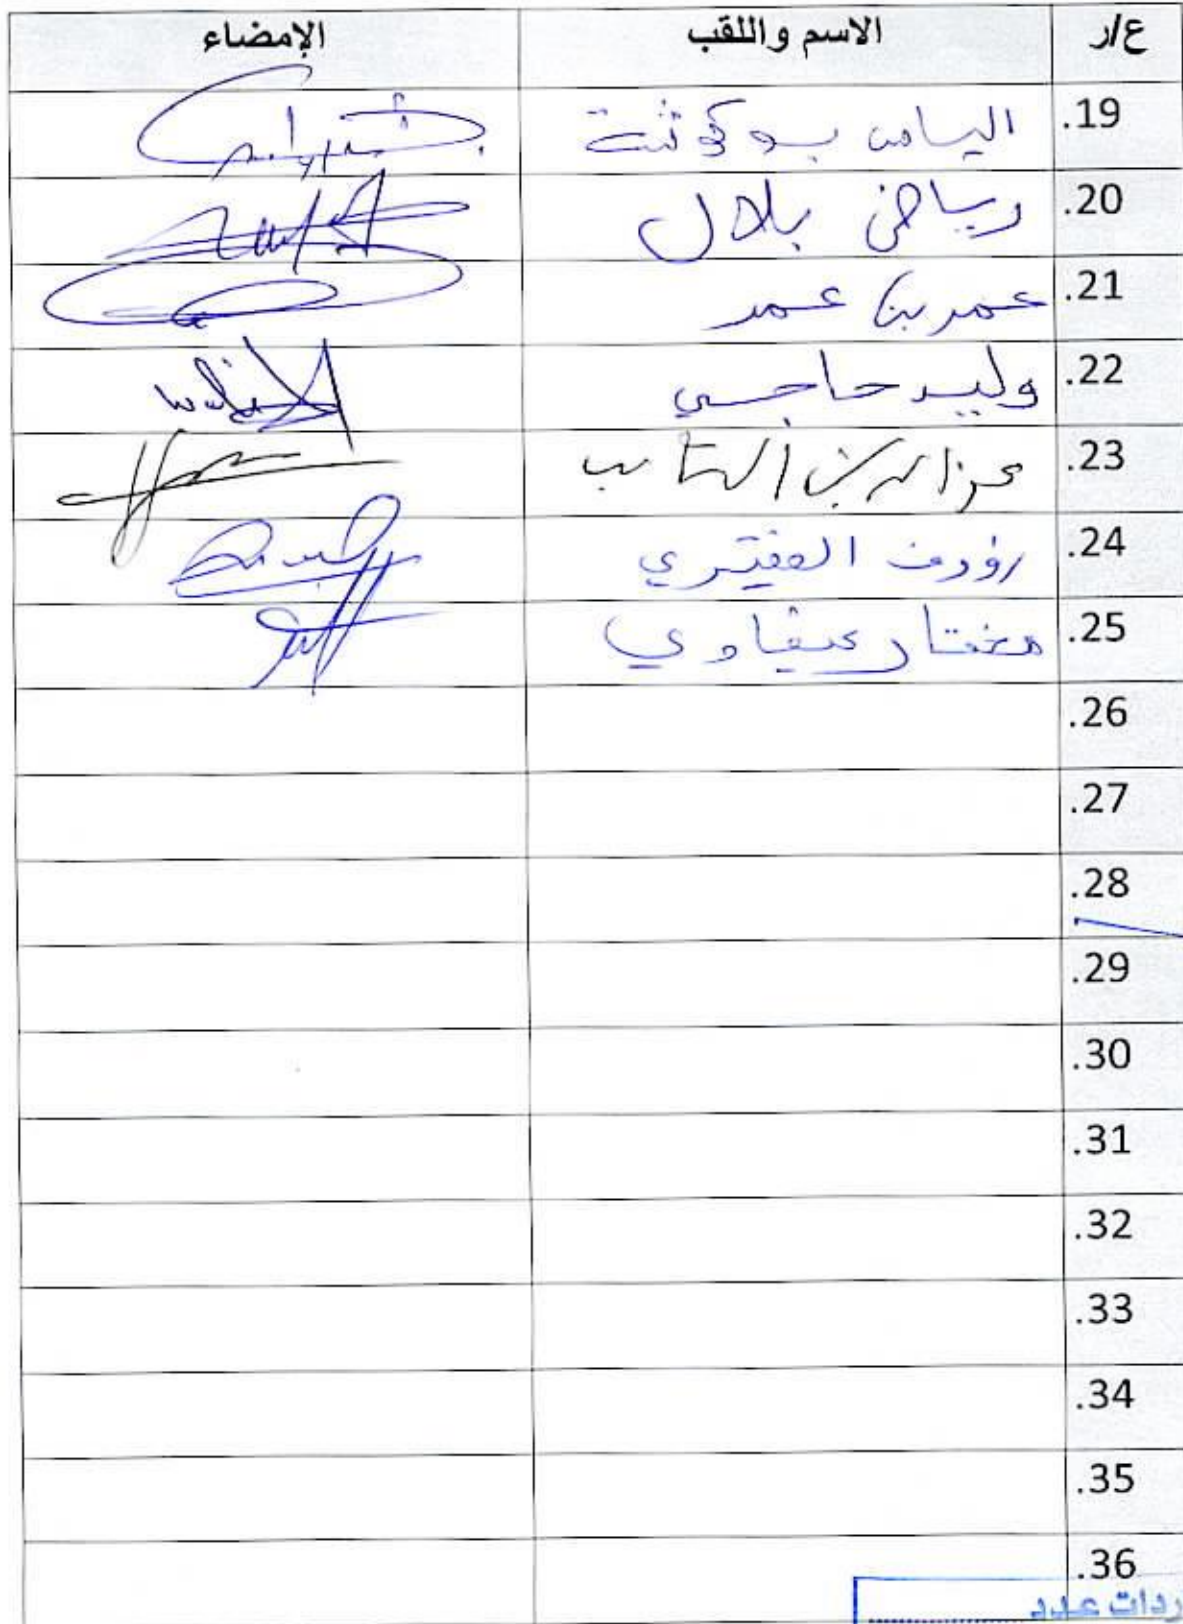 ع/ر الاسم واللقب الإمضاء
.19 الياس بوكوثة
.20 رياض بلال
.21 عمر بن عمر
.22 وليد حاجي walid
.23 عز الدين التايب
.24 رؤوف الفقيري
.25 مختار عيفاوي
.26
.27
.28
.29
.30
.31
.32
.33
.34
.35
.36
ردات عدد